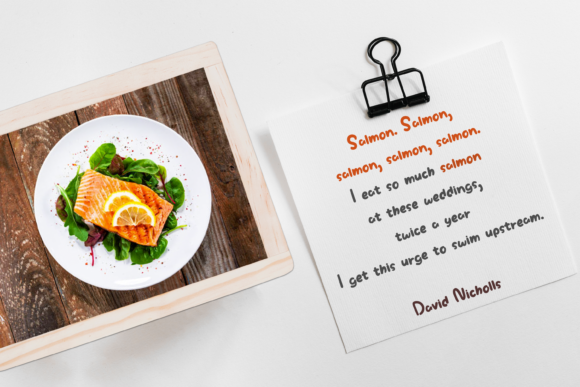 Salmon. Salmon,
salmon, salmon, salmon.
I eat so much salmon
at these weddings,
twice a year
I get this urge to swim upstream.
David Nicholls